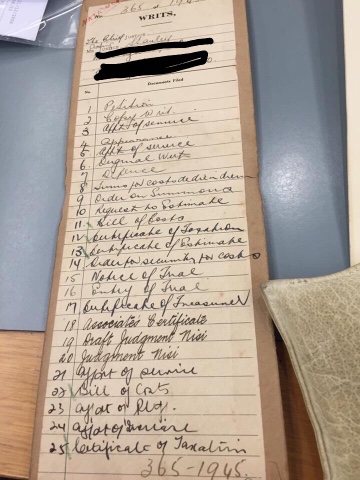 No. 365 of 194
WRITS.
The Chief
Documents Filed
1 Petition
2 Copy Writ
3 Affdt of service
4 Appearance
5 Affdt of service
6 Original Writ
7 Defence
8 Sums for costs
9 Order on Summons
10 Request to Estimate
11 Bill of Costs
12 Certificate of Taxation
13 Certificate of Estimate
14 Order for security for costs
15 Notice of Trial
16 Entry of Trial
17 Certificate of Treasurer
18 Associates Certificate
19 Draft Judgment Nisi
20 Judgment Nisi
21 Affdt of service
22 Bill of Costs
23 Affdt of
24 Affdt of Service
25 Certificate of Taxation
365-1945